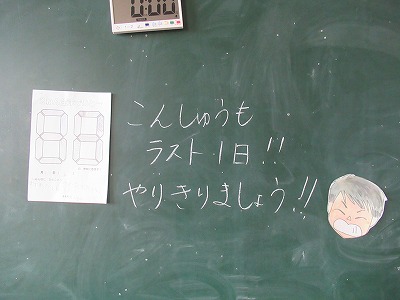 0:00
こんしゅうも
ラスト1日!!
やりきりましょう!!